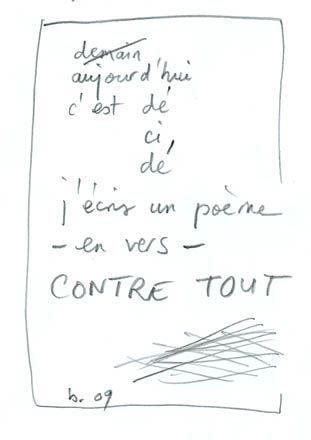 demain
aujourd'hui
c'est dé
ci,
dé
j'écris un poème
- en vers -
CONTRE TOUT
b. 09